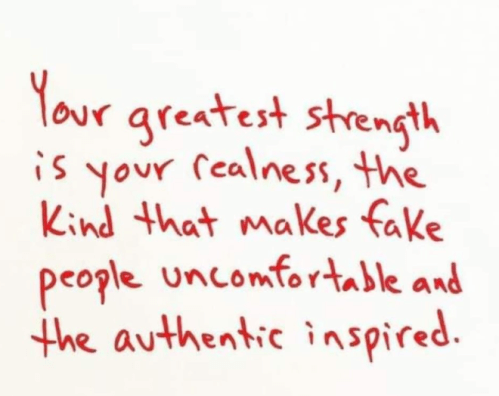 Your greatest strength
is your realness, the
kind that makes fake
people uncomfortable and
the authentic inspired.